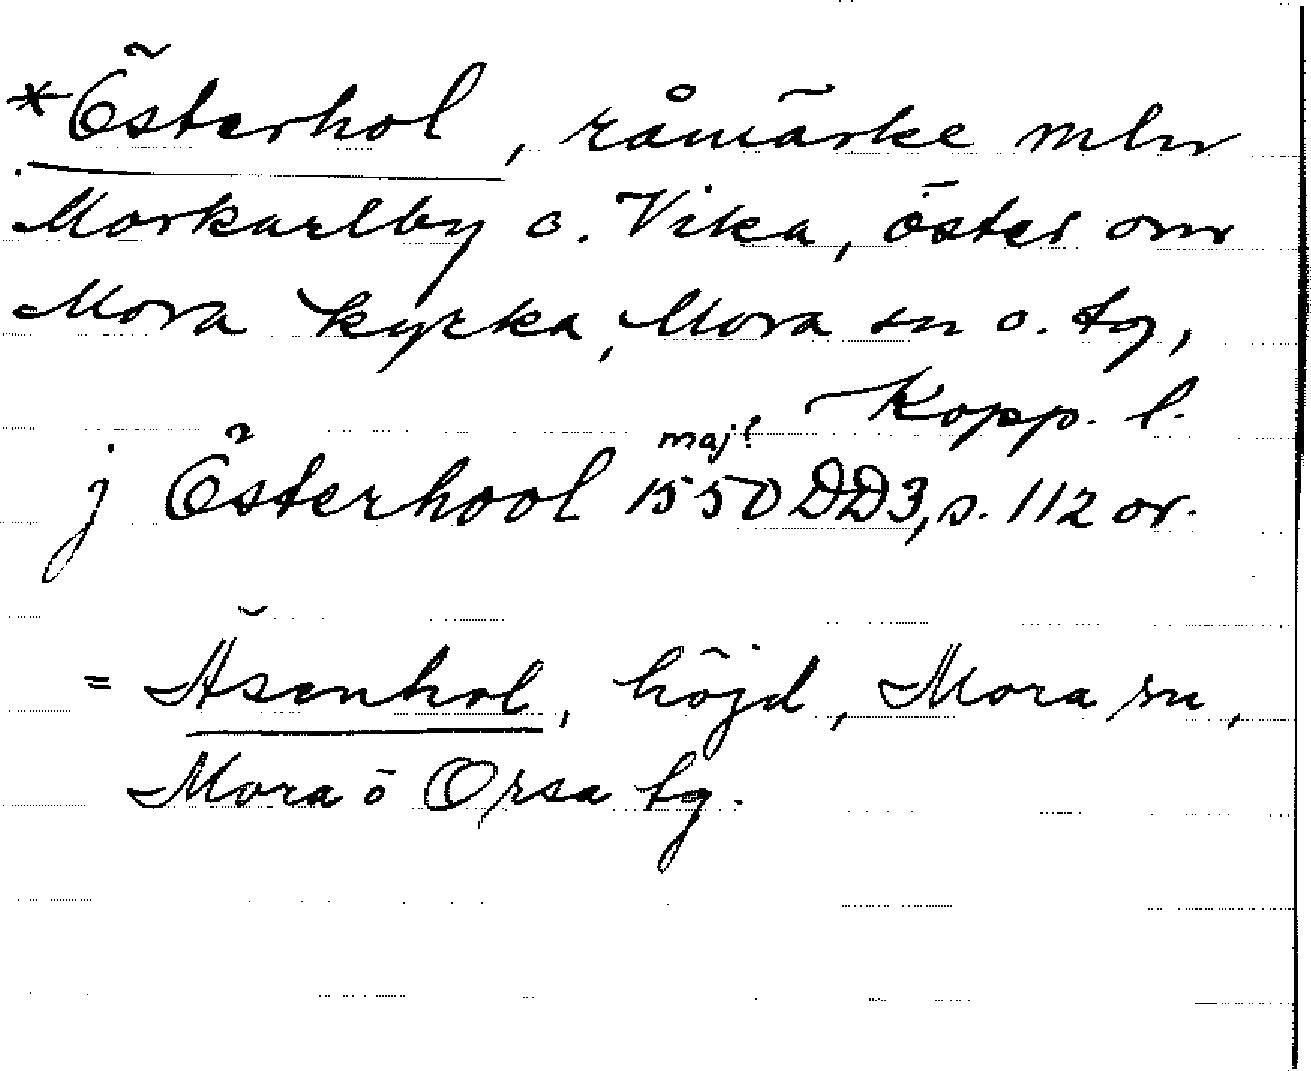 *Österhol, råmärke mln
Morkarlby o. Vika, öster om
Mora kyrka, Mora sn o. tg,
Kopp. l.
maj!
j Österhool 1550 DD3, s. 112 or.
= Äsenhol, höjd, Mora sn,
Mora o Orsa tg.